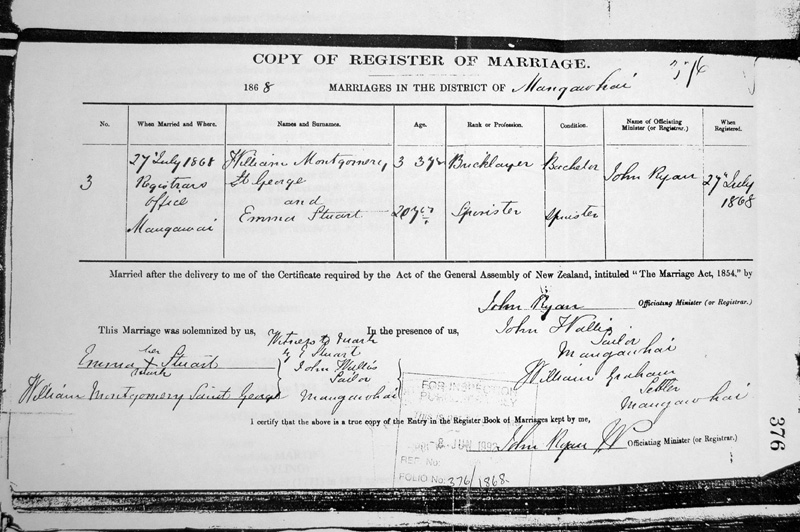 COPY OF REGISTER OF MARRIAGE.
376
1868 MARRIAGES IN THE DISTRICT OF Mangawhai
No. When Married and Where. Names and Surnames. Age. Rank or Profession. Condition. Name of Officiating Minister (or Registrar). When Registered.
3
27th July 1868
Registrars
office
Mangawai
William Montgomery
St George
and
Emma Stuart
33 yrs
20 yrs
Bricklayer
Spinster
Bachelor
Spinster
John Ryan
27th July
1868
Married after the delivery to me of the Certificate required by the Act of the General Assembly of New Zealand, intituled "The Marriage Act, 1854," by
John Ryan Officiating Minister (or Registrar.)
This Marriage was solemnized by us,
Emma her x mark Stuart
William Montgomery Saint George
Witness to mark
of E Stuart
John Wallis
Sailor
Mangawhai
In the presence of us,
John Wallis
Sailor
Mangawhai
William Graham
Settler
Mangawhai
I certify that the above is a true copy of the Entry in the Register Book of Marriages kept by me,
John Ryan Officiating Minister (or Registrar.)
FOR INSPECTION
PURPOSES ONLY
This is
-8 JUN 1992
REF. No:
FOLIO No: 376/1868
376